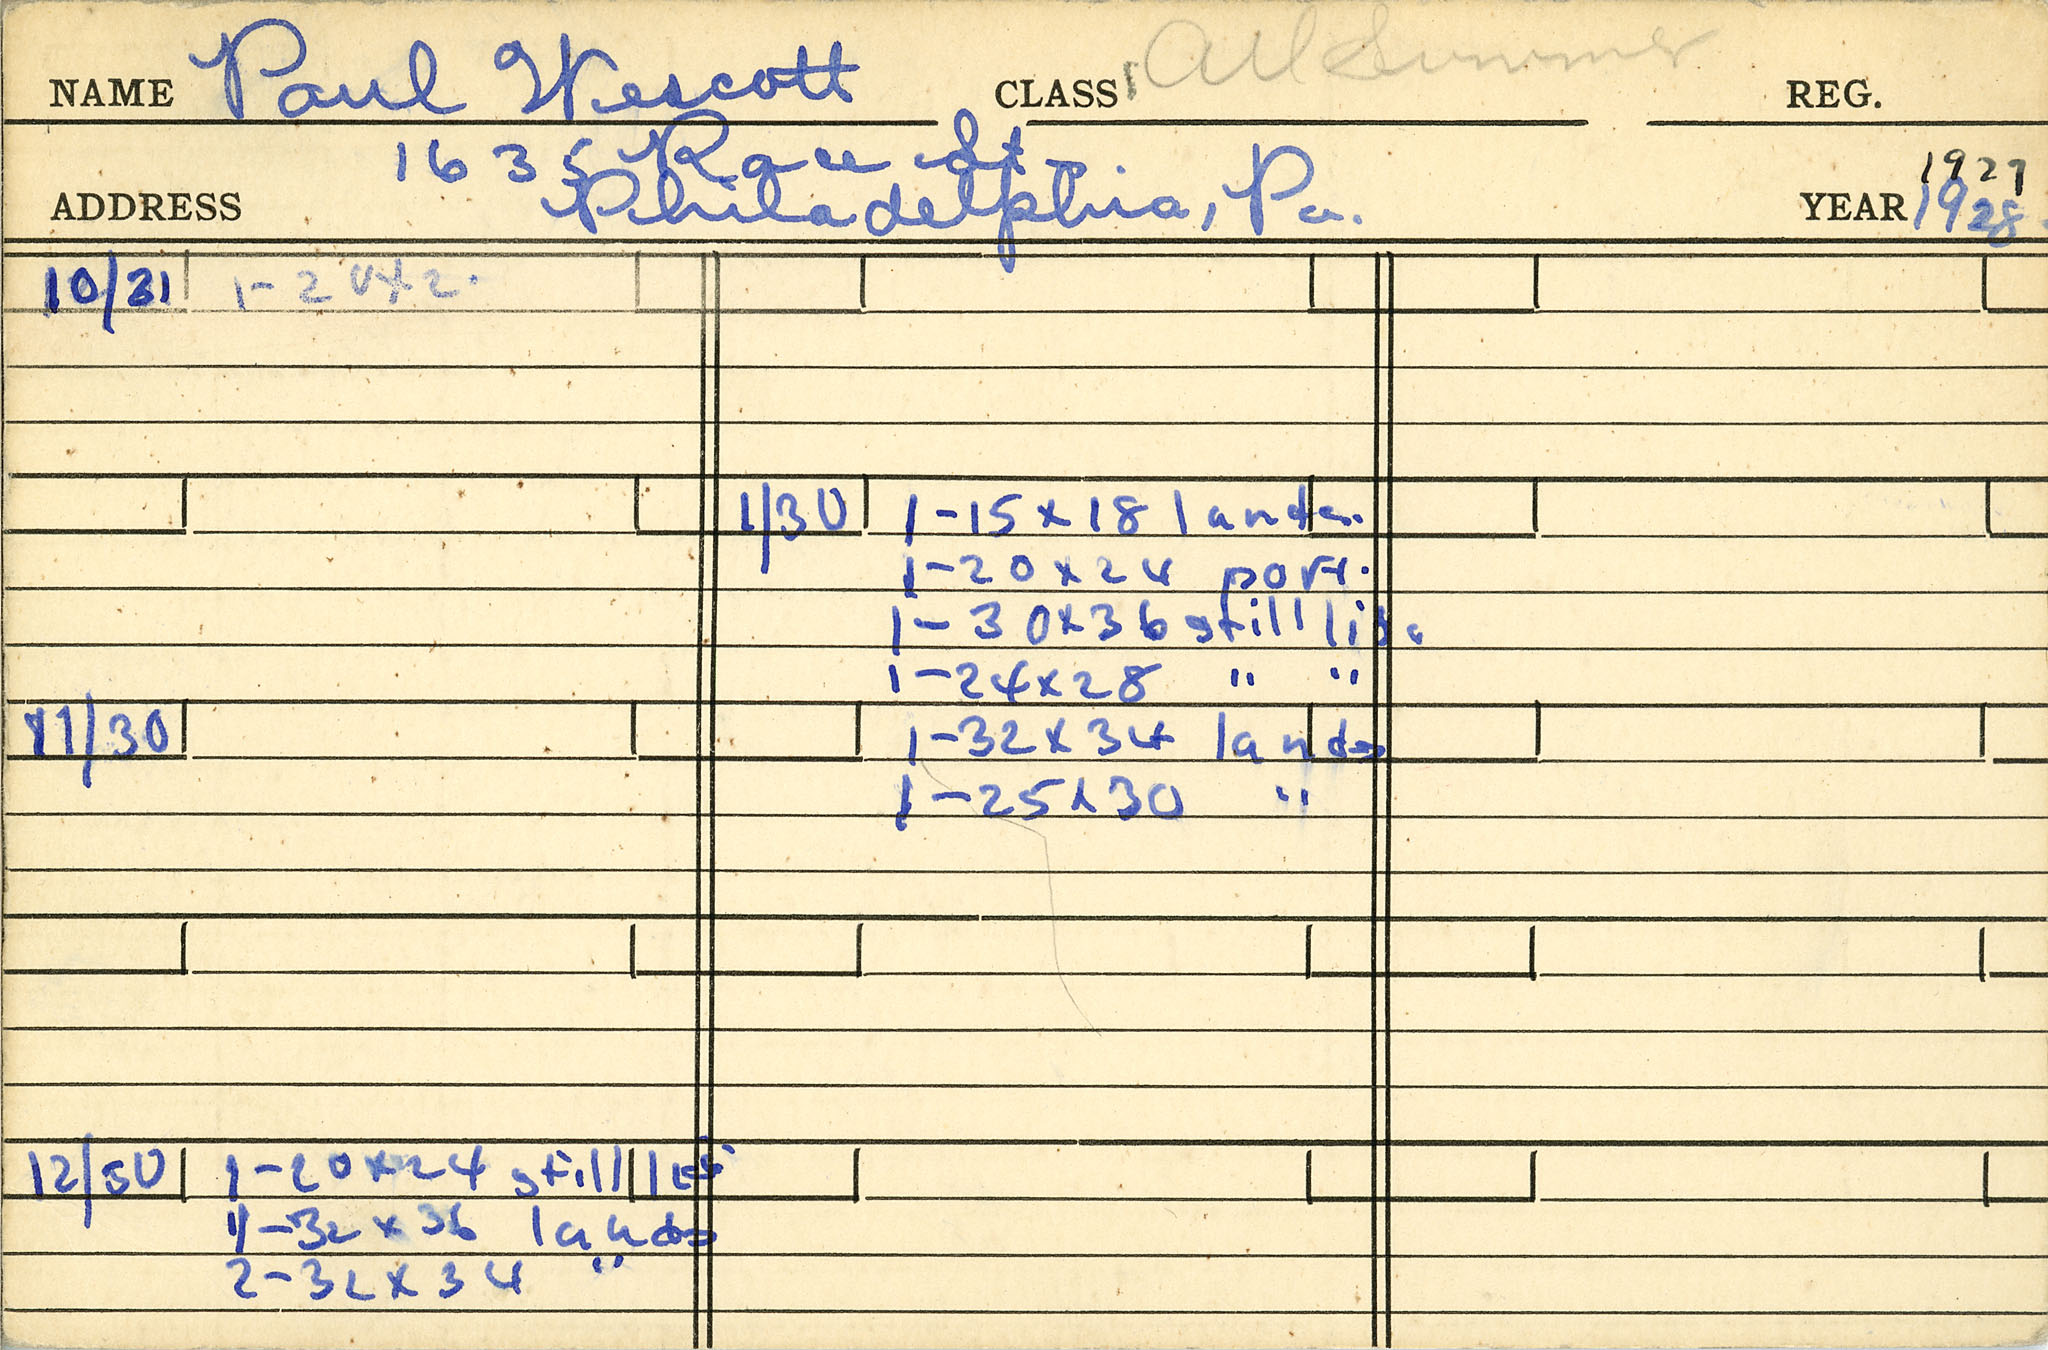 NAME Paul Wescott CLASS All Summer REG.
1635 Race St.
ADDRESS Philadelphia, Pa. YEAR 1927
1928
10/31
1/30 1-15x18 lands.
1-20x24 port.
1-30x36 still life
1-24x28 " "
11/30 1-32x34 lands
1-25x30 "
12/30 1-20x24 still life
1-32x36 lands
2-32x34 "